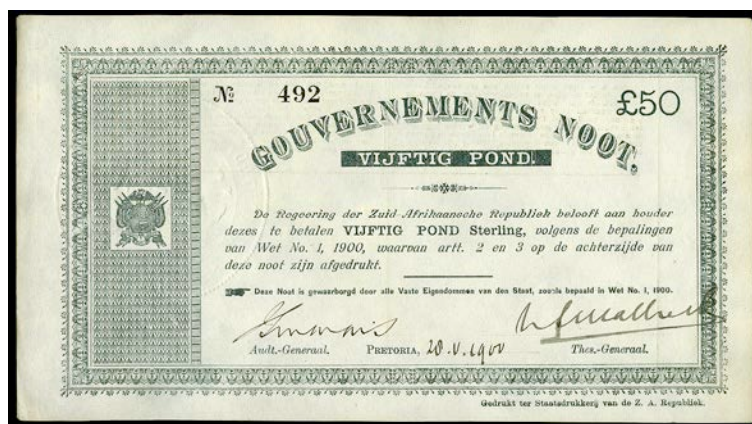 № 492
£50
GOUVERNEMENTS NOOT.
VIJFTIG POND.
De Regeering der Zuid Afrikaansche Republiek belooft aan houder
dezes te betalen VIJFTIG POND Sterling, volgens de bepalingen
van Wet No. 1, 1900, waarvan artt. 2 en 3 op de achterzijde van
deze noot zijn afgedrukt.
Deze Noot is gewaarborgd door alle Vaste Eigendommen van den Staat, zooals bepaald in Wet No. 1, 1900.
Audt.-Generaal. PRETORIA, 28.V.1900 Thes.-Generaal.
Gedrukt ter Staatsdrukkerij van de Z. A. Republiek.